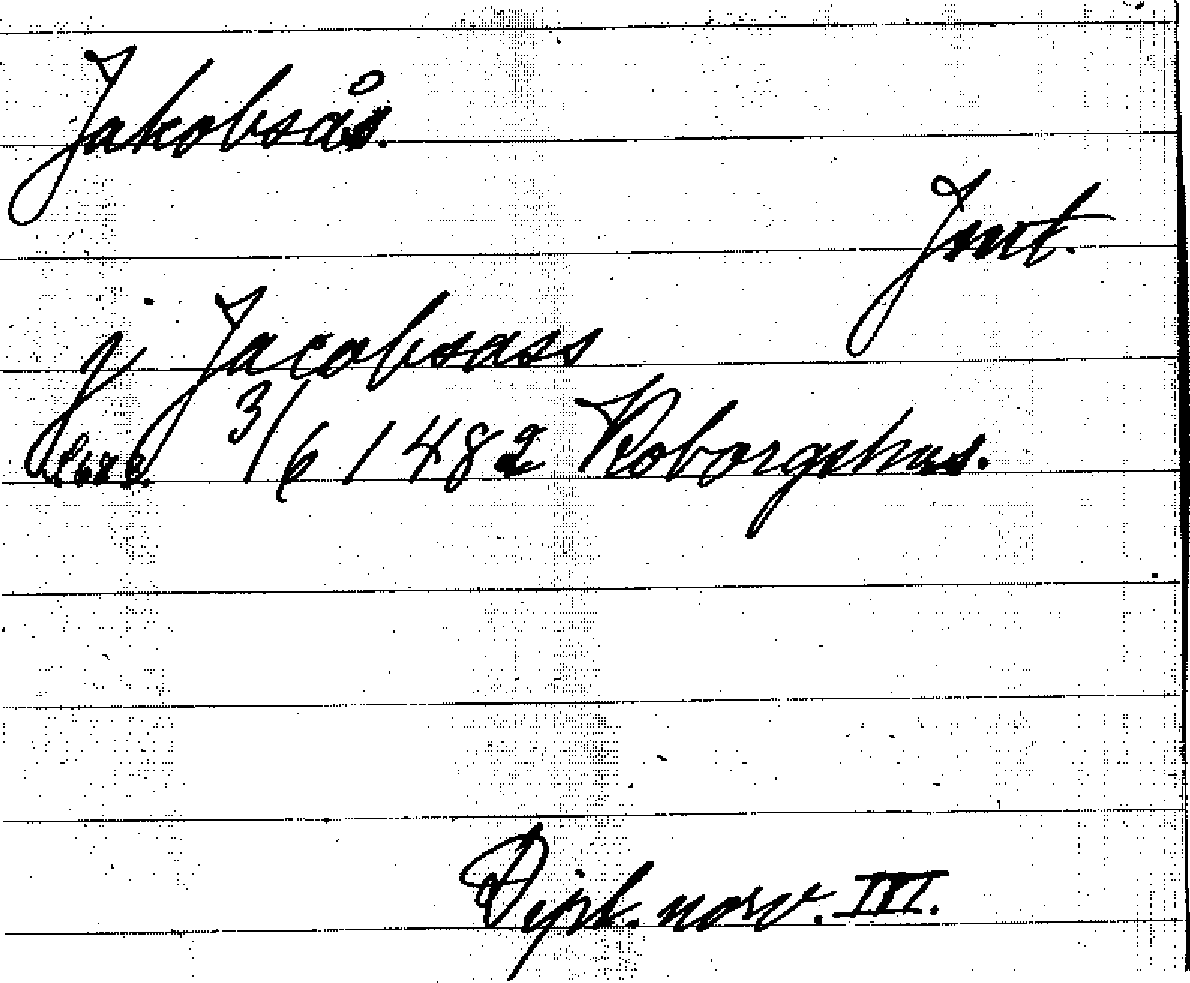 Jakobsås.
Jmt.
j Jacobsass
3/6 1482 Roborgshus.
Dipl. norv. III.